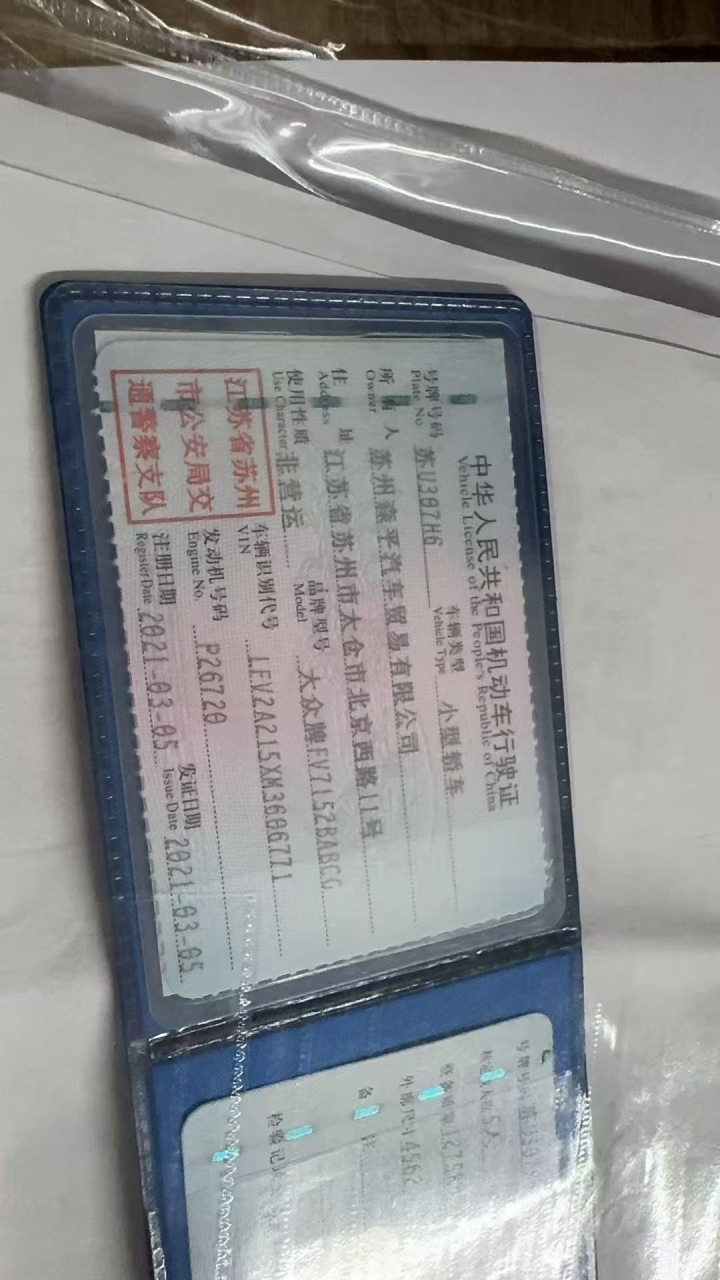 中华人民共和国机动车行驶证
Vehicle License of the People's Republic of China
号牌号码 苏U307H6 车辆类型 小型轿车
Plate No. Vehicle Type
所有人
Owner
住址 江苏省苏州市太仓市北京西路11号
Address
使用性质 非营运 品牌型号 大众牌FV7152BABCG
Use Character Model
江苏省苏州
市公安局交
通警察支队
车辆识别代号 LFV2A215XM3606771
VIN
发动机号码 P26720
Engine No.
注册日期 2021-03-05 发证日期 2021-03-05
Register Date Issue Date
号牌号码
5人
外廓尺寸 4562
备注
检验记